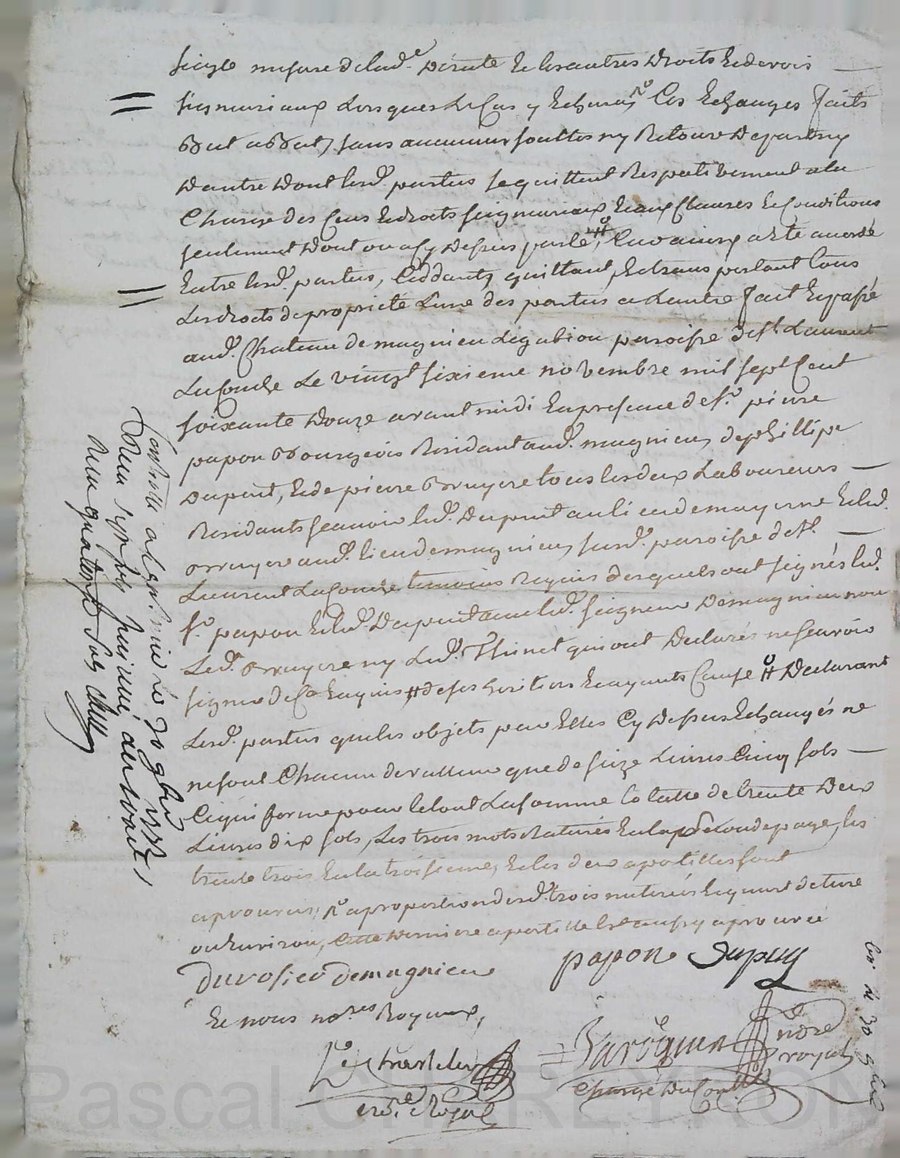 seigle mesure de lad.e perute et les autres droits et devoirs
seigneuriaux Lorsque Le Cas y Echerra, Ces Echanges faits
But a But, sans aucunes soultes ny Retour De part ny
D'autre Dont lesd. parties se quittent Respectivement a la
Charge des Cens et droits seigneuriaux Et aux Clauses et Conditions
seulement Dont on a Cy Dessus parlé, Ainsy a Eté accordé
Entre lesd. parties, Ceddants, quittant, Et transportant tous
Les droits de propriété L'une des parties a L'autre fait Et passé
aud. Chateau de magnieu Legabion paroisse de St Laurent
La Conche Le vingt sixieme novembre mil sept Cent
soixante Douze avant midi En presence de Sr. pierre
papon Bourgeois Residant aud. magnieu, de phillipe
Dupuit, Et de pierre Bruyere tous les deux Laboureurs
Residants scavoir led. Dupuit au lieu de mayerne et led.
Bruyere aud. lieu de magnieu susd. paroisse de St.
Laurent La Conche temoins Requis desquels ont signés led.
Sr. papon et led. Dupuit avec led. seigneur De magnieu non
Led. Bruyere ny Led. Thinet qui ont Declarés ne scavoir
signer de Ce Enquis # de ses hoirs et ayants Cause # Declarant
Lesd. parties que les objets par Elles Cy Dessus Echangés ne
ne sont Chacun de valleur que de seize Livres Cinq sols
Ce qui forme pour le tout La somme totalle de trente Deux
Livres dix sols, Les trois mots raturés En la seconde page, les
trente trois En la troisieme, Et les deux apostilles sont
aprouvés, a proportion desd. trois mesures Et quart de terre
ou Environ, Cette derniere apostille Est aussy aprouvée
Durosier de magnieu papon Dupuy
Et nous no.res Royaux,
no.re royal
no.re Royal
Charge Du Cont.
Controllé a le 30 9bre 1772,
Reçu quatorze sols
Pascal CHAREYRON